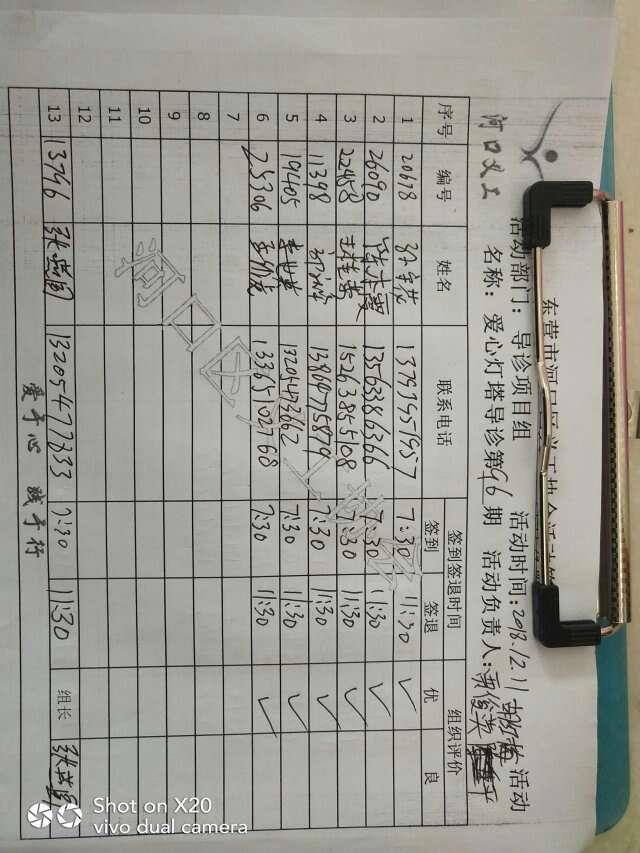 东营市河口区义工协会活动签
河口义工
活动部门：导诊项目组 活动时间：2018.12.11
名称：爱心灯塔导诊第96期 活动负责人： 活动
序号 编号 姓名 联系电话 签到签退时间 组织评价
签到 签退 优 良
1 20678 13793951957 7:30 11:30 ✓
2 26090 13563386366 7:30 11:30 ✓
3 22458 15263855108 7:30 11:30 ✓
4 11398 13869775879 7:30 11:30 ✓
5 19405 13205473662 7:30 11:30 ✓
6 25306 13365102768 7:30 11:30 ✓
7
8
9
10
11
12
13 13796 13205477333 7:30 11:30 组长
爱于心 践于行
河口区义工协会
Shot on X20
vivo dual camera